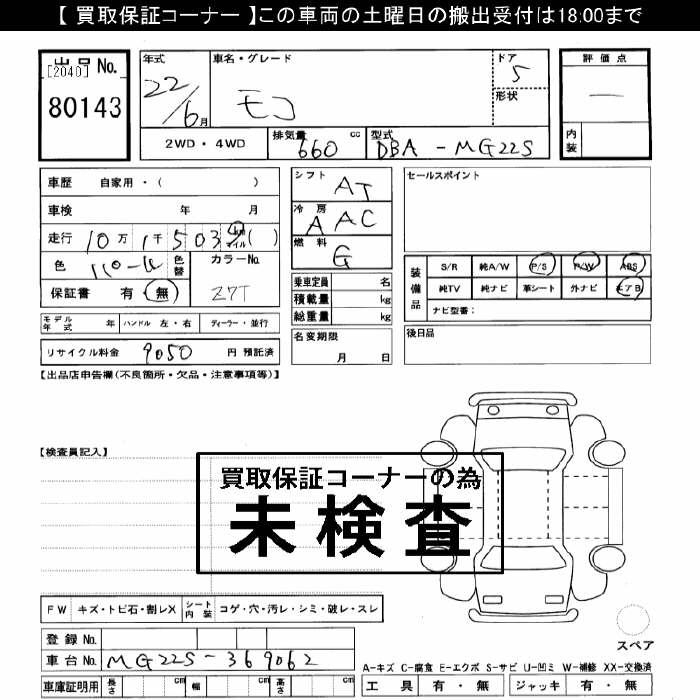 【 買取保証コーナー 】この車両の土曜日の搬出受付は18:00まで
出品 No.
[2040]
80143
年式
22/6月
車名・グレード
モコ
ドア
5
形状
評価点
—
内装
2WD・4WD
排気量 660 cc
型式 DBA-MG22S
車歴 自家用・( )
車検 年 月
走行 10万1千503 km マイル ( )
色 色替
カラーNo. Z7T
保証書 有 無
シフト AT
冷房 AAC
燃料 G
乗車定員 名
積載量 kg
総重量 kg
セールスポイント
装備品
S/R 純A/W P/S P/W ABS
純TV 純ナビ 革シート 外ナビ エアB
ナビ型番:
モデル年式 年 ハンドル 左・右 ディーラー・並行
名変期限 月 日
後日品
リサイクル料金 9050 円 預託済
【出品店申告欄(不良箇所・欠品・注意事項等)】
【検査員記入】
買取保証コーナーの為
未検査
FW キズ・トビ石・割レX シート内装 コゲ・穴・汚レ・シミ・破レ・スレ
スペア
登録 No.
車台 No. MG22S-369062
A-キズ C-腐食 E-エクボ S-サビ U-凹ミ W-補修 XX-交換済
車庫証明用 長さ cm 幅 cm 高さ cm
工具 有・無 ジャッキ 有・無